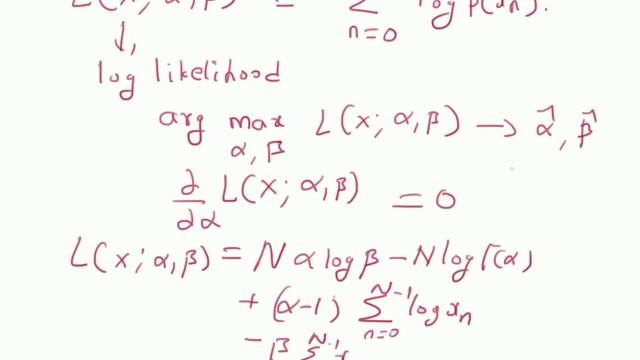 L(x; α,β) = Σ log p(xn).
n=0
↓,
log likelihood
arg max L(x; α,β) → α̂, β̂
α,β
∂/∂α L(x; α,β) = 0
L(x; α,β) = Nα log β - N log Γ(α)
+ (α-1) Σ_{n=0}^{N-1} log xn
- β Σ^{N-1} x